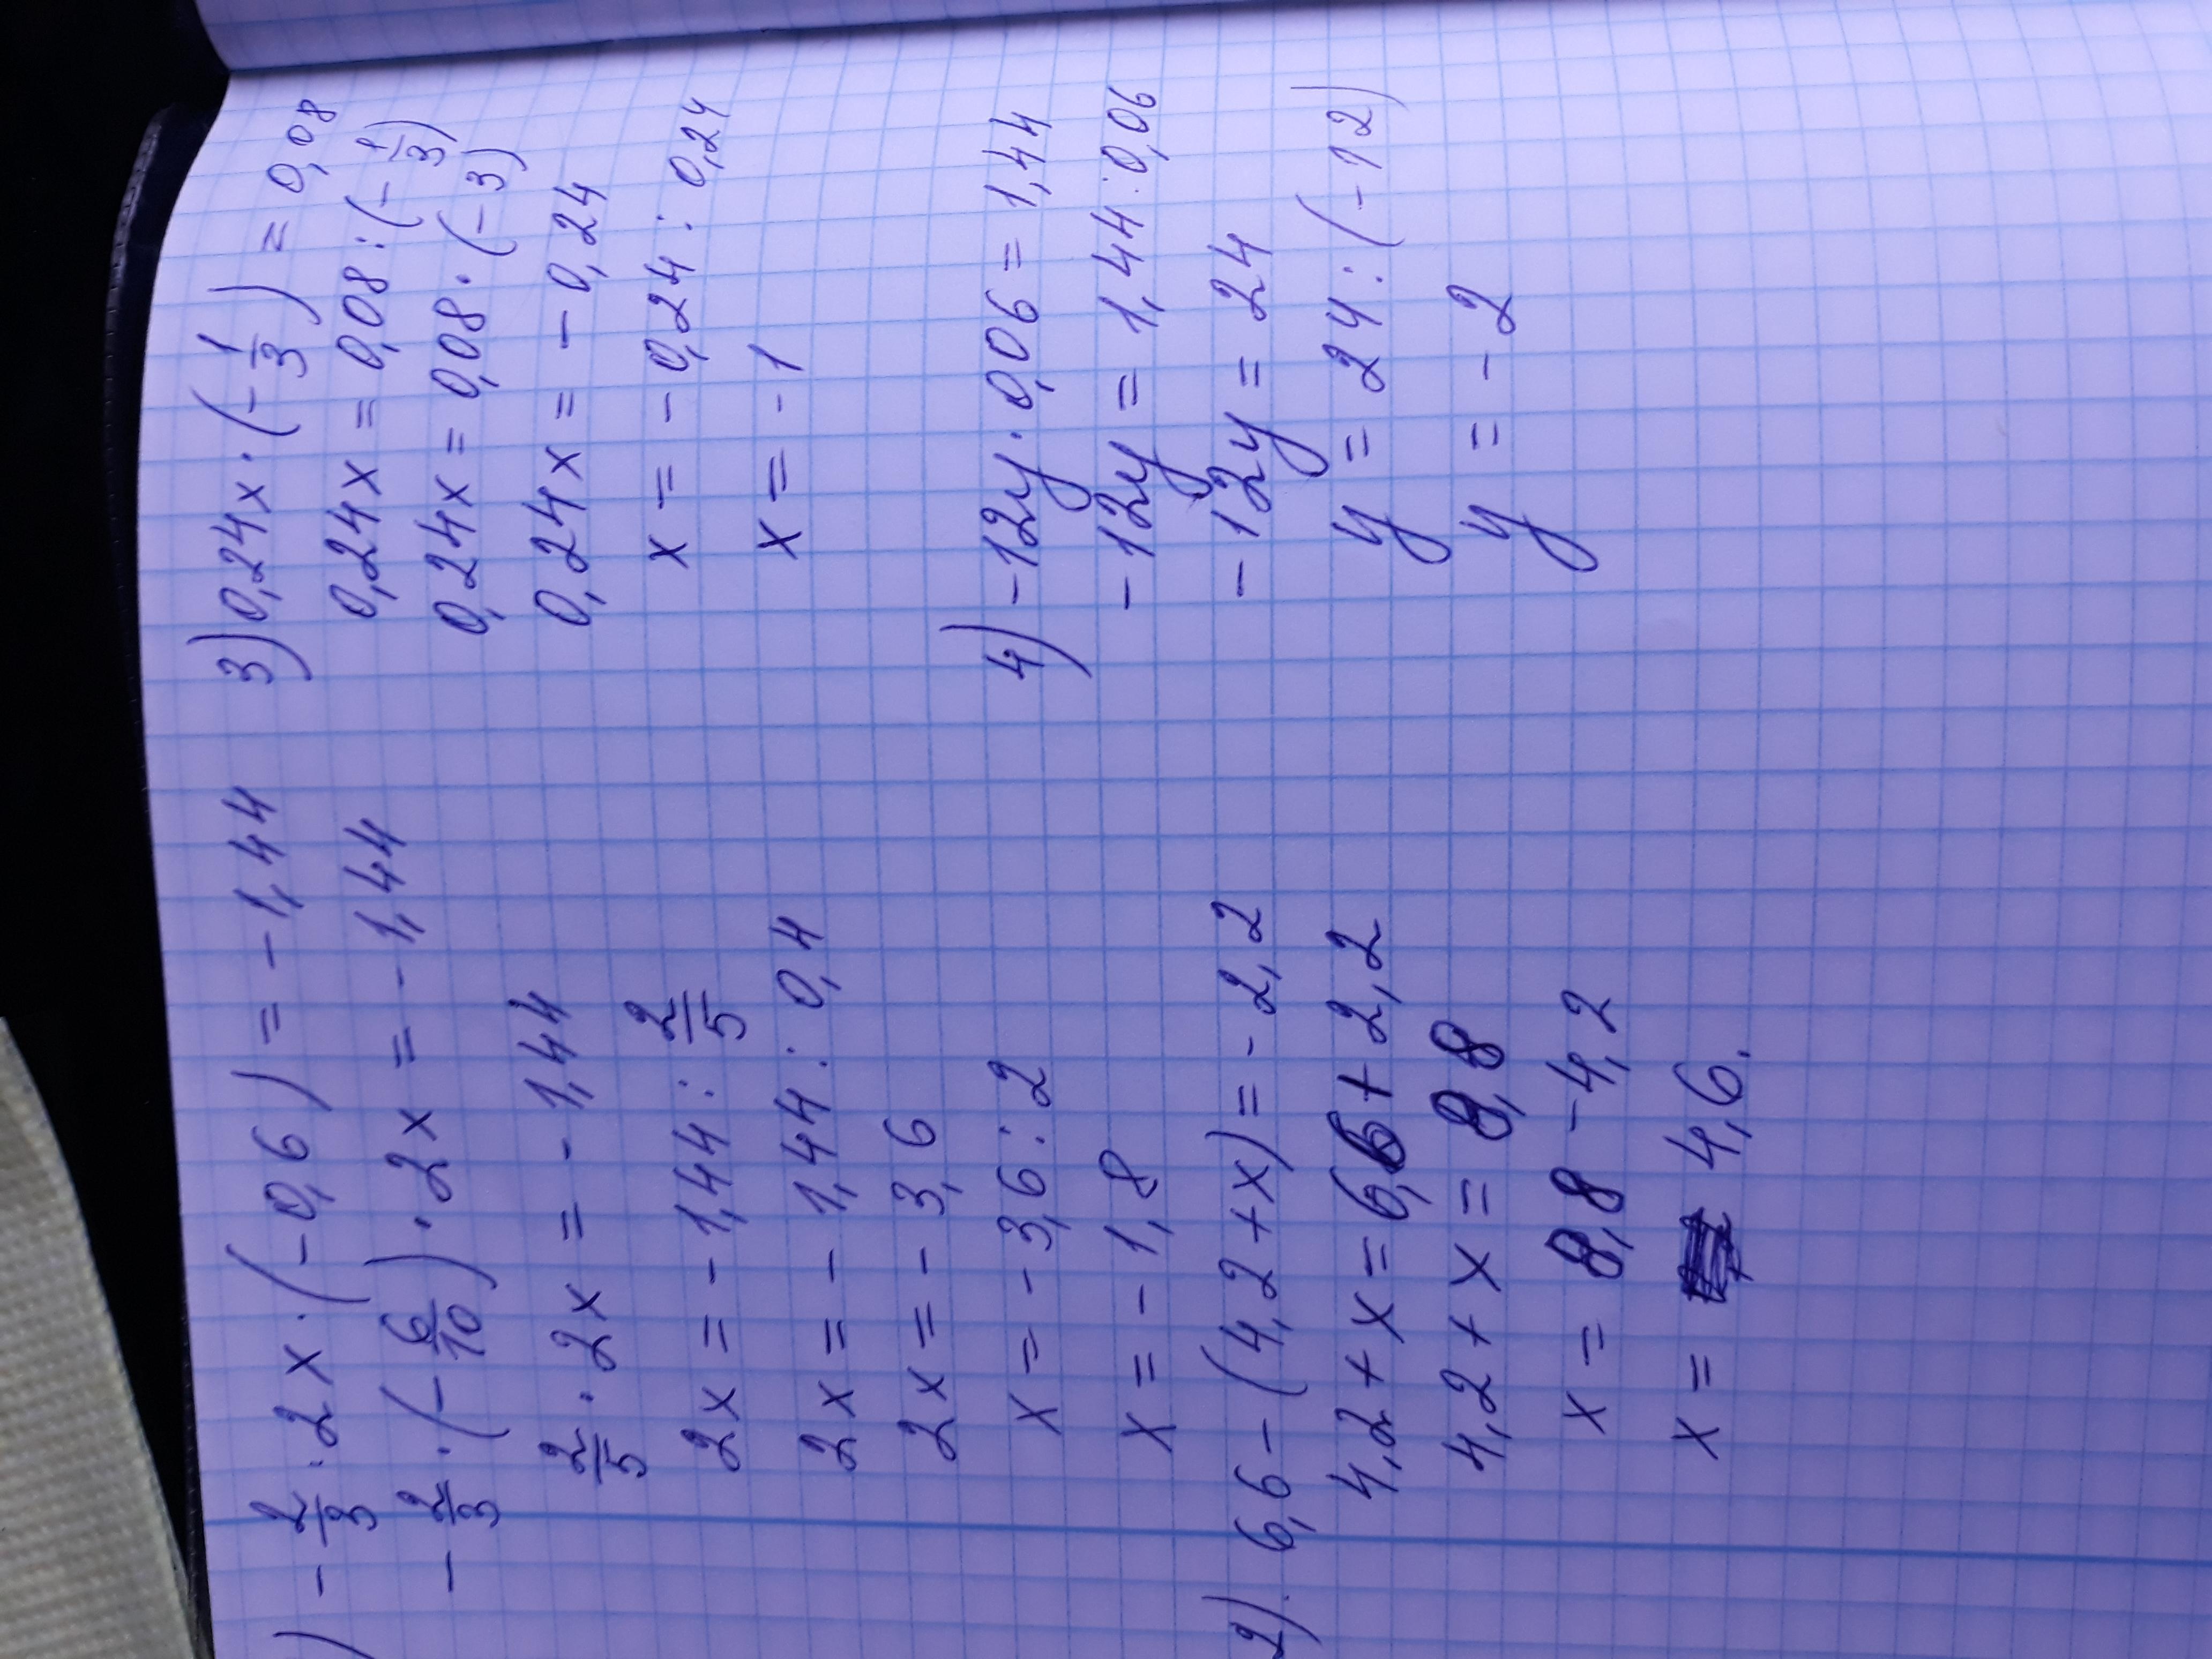 ) - 2/3 · 2x · (-0,6) = -1,44
- 2/3 · (- 6/10) · 2x = -1,44
2/5 · 2x = -1,44
2x = -1,44 : 2/5
2x = -1,44 : 0,4
2x = -3,6
x = -3,6 : 2
x = -1,8
2). 6,6 - (4,2 + x) = -2,2
4,2 + x = 6,6 + 2,2
4,2 + x = 8,8
x = 8,8 - 4,2
x = 4,6.
3) 0,24x · (- 1/3) = 0,08
0,24x = 0,08 : (- 1/3)
0,24x = 0,08 · (-3)
0,24x = -0,24
x = -0,24 : 0,24
x = -1
4) -12y · 0,06 = 1,44
-12y = 1,44 : 0,06
-12y = 24
y = 24 : (-12)
y = -2